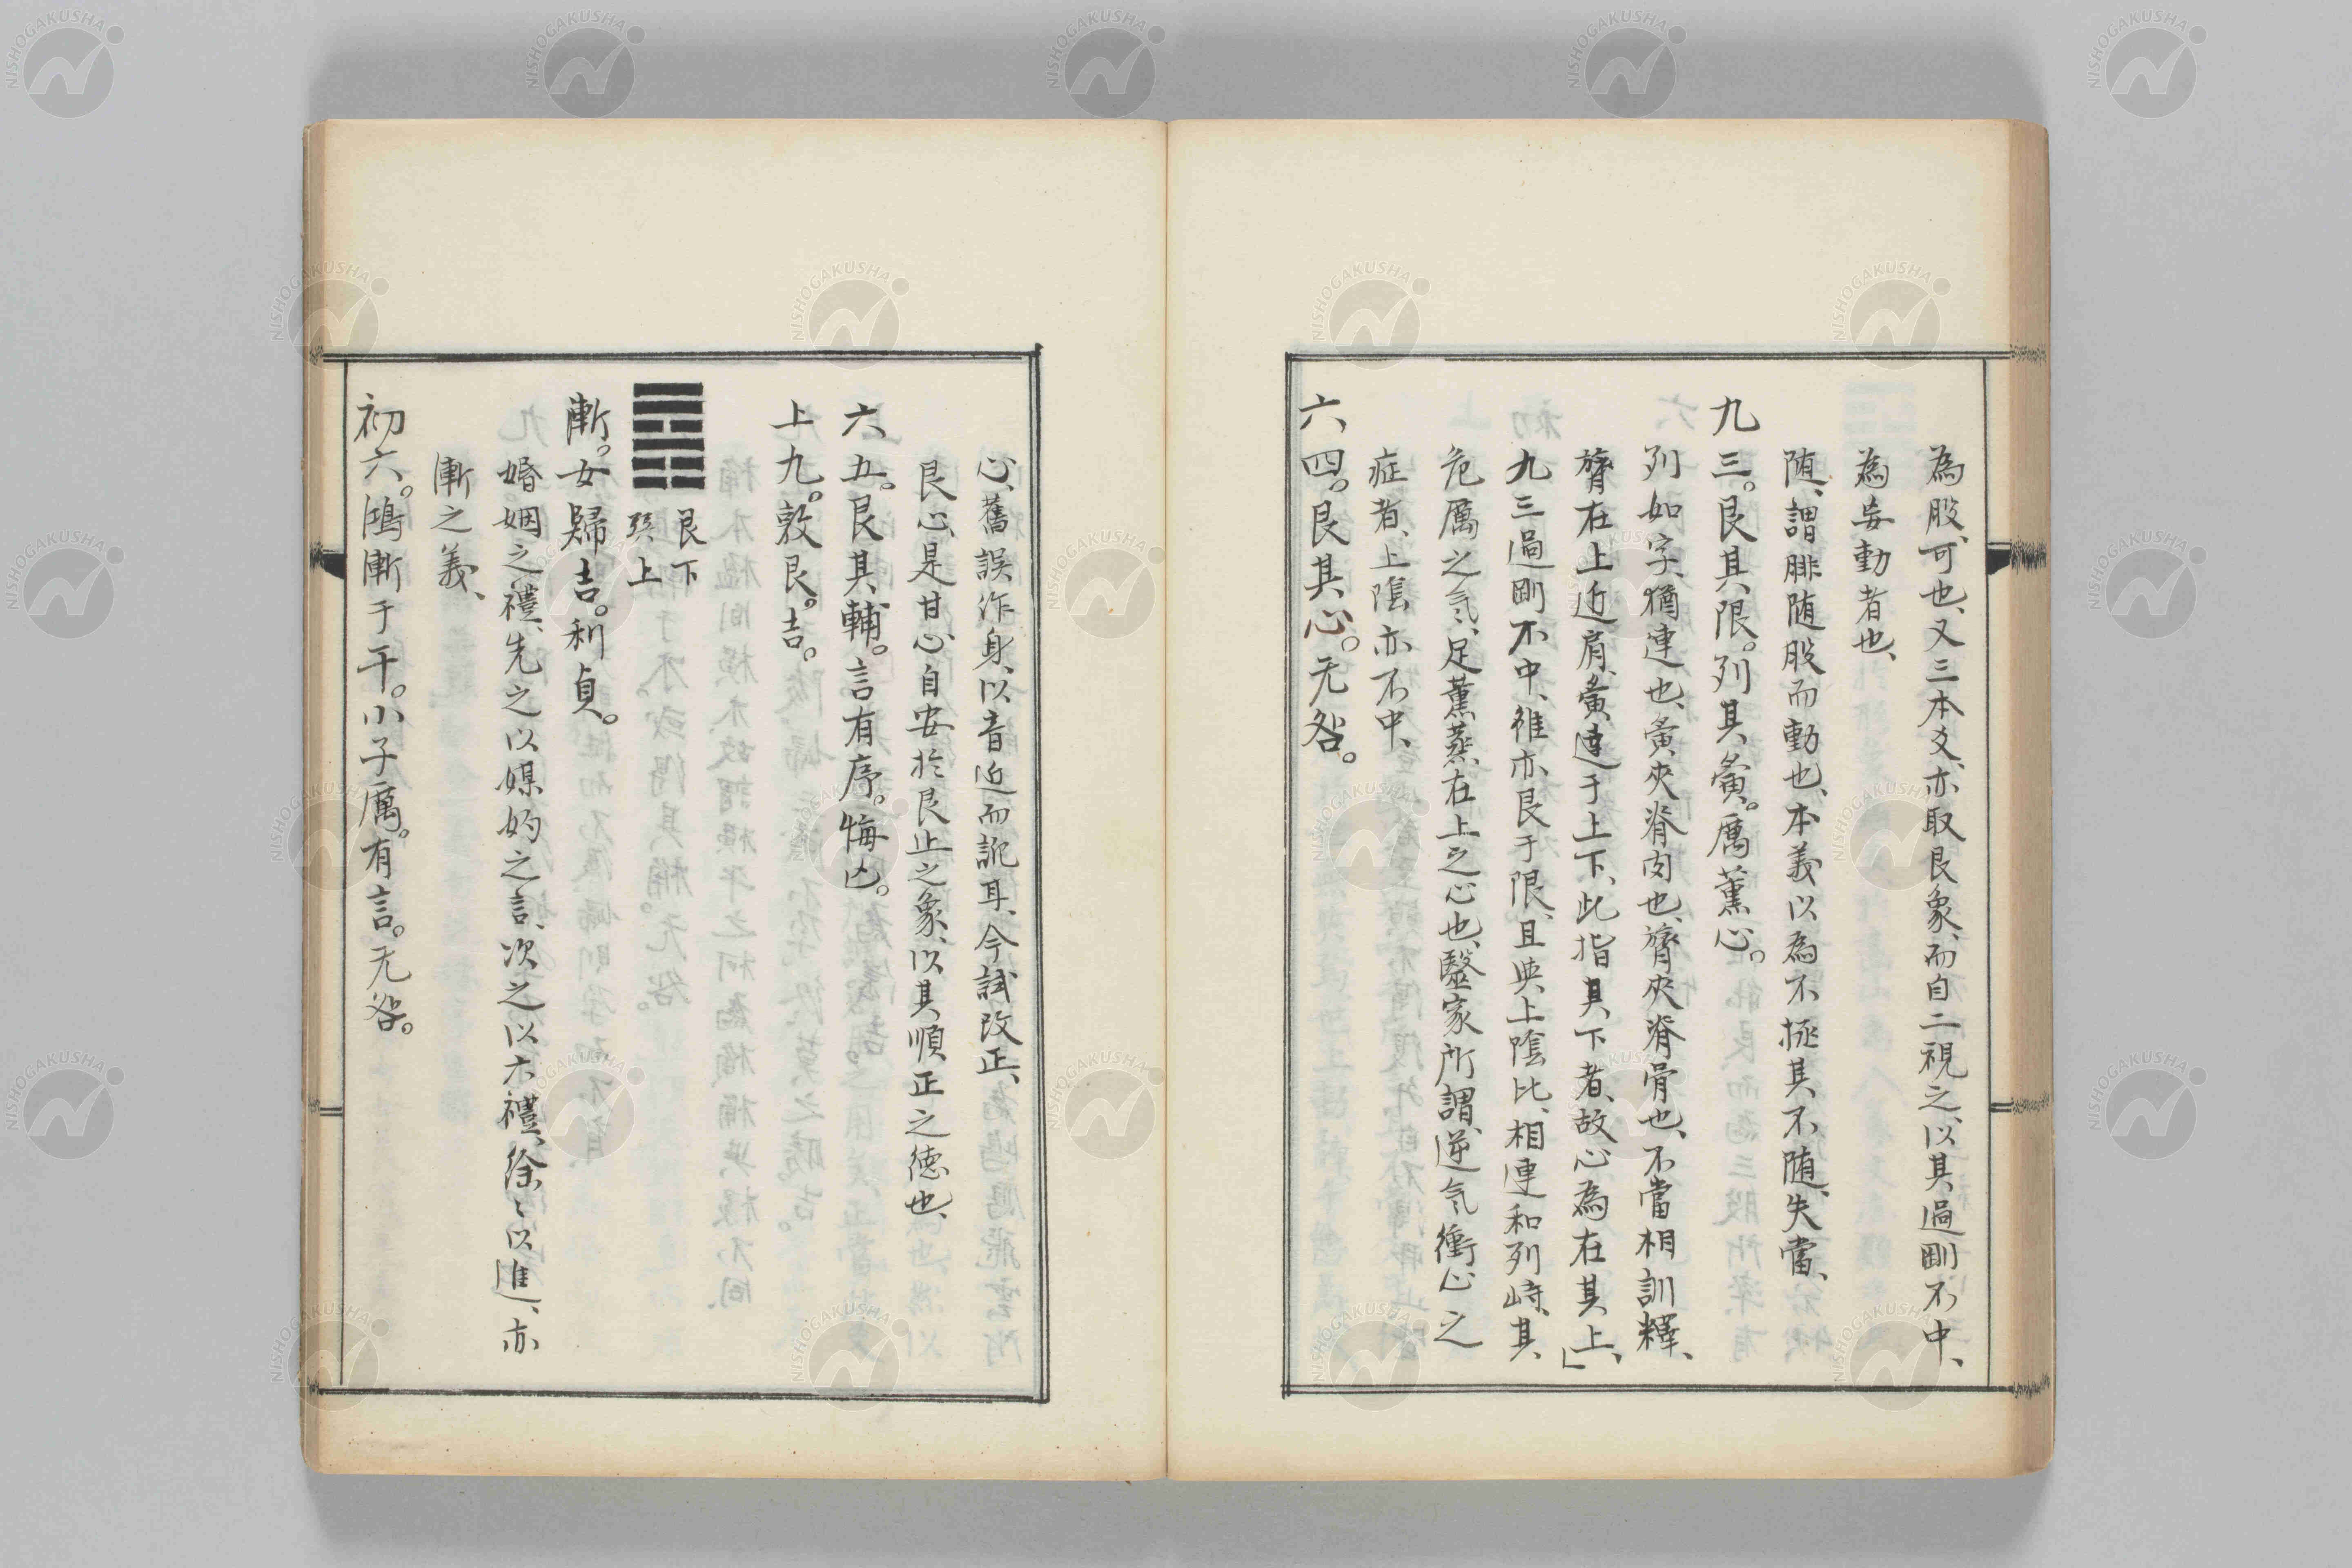 為股、可也、又三本爻、亦取艮象、而自二視之、以其過剛不中、
為妄動者也、
随、謂腓随股而動也、本義以為不拯其不随、失當、
九三。艮其限。列其夤。厲薫心。
列如字、猶連也、夤夾脊肉也、膂夾脊骨也、不當相訓釋、
膂在上近肩、夤連于上下、此指其下者、故心為在其上、」
九三過剛不中、雖亦艮于限、且與上陰比、相連和列峙、其
危厲之気、足薫蒸在上之心也、毉家所謂逆気衝心之
症者、上陰亦不中、
六四。艮其心。无咎。
心、舊誤作身、以音近而訛耳、今試改正、
艮心、是甘心自安於艮止之象、以其順正之徳也、
六五。艮其輔。言有序。悔亡。
上九。敦艮。吉。
艮下
巽上
漸。女歸吉。利貞。
婚姻之禮、先之以媒妁之言、次之以六禮、徐〻以進、亦
漸之義、
初六。鴻漸于干。小子厲。有言。无咎。
NISHOGAKUSHA